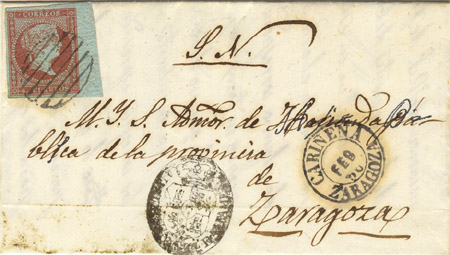 CORREOS
S. N.
M. Y. S. Admor. de Hacienda Pú-
blica de la provincia
de
Zaragoza
CARIÑENA
FEB
ZARAGOZA